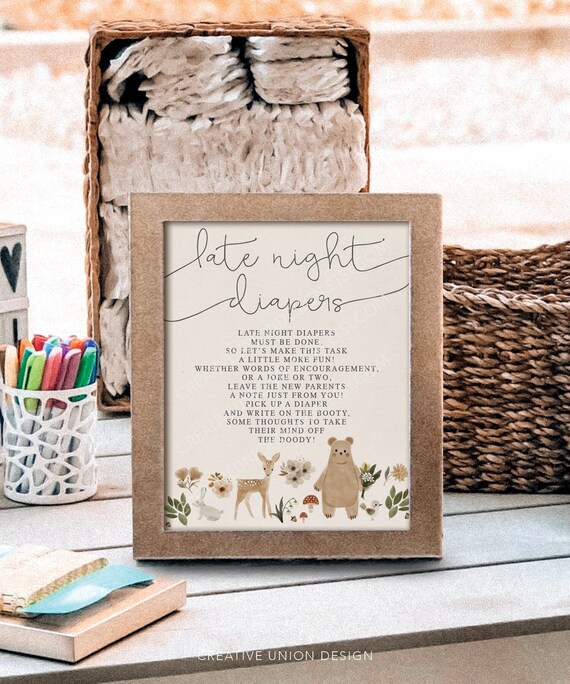 late night
diapers
LATE NIGHT DIAPERS
MUST BE DONE,
SO LET'S MAKE THIS TASK
A LITTLE MORE FUN!
WHETHER WORDS OF ENCOURAGEMENT,
OR A JOKE OR TWO,
LEAVE THE NEW PARENTS
A NOTE JUST FROM YOU!
PICK UP A DIAPER
AND WRITE ON THE BOOTY,
SOME THOUGHTS TO TAKE
THEIR MIND OFF
THE DOODY!
CREATIVE UNION DESIGN